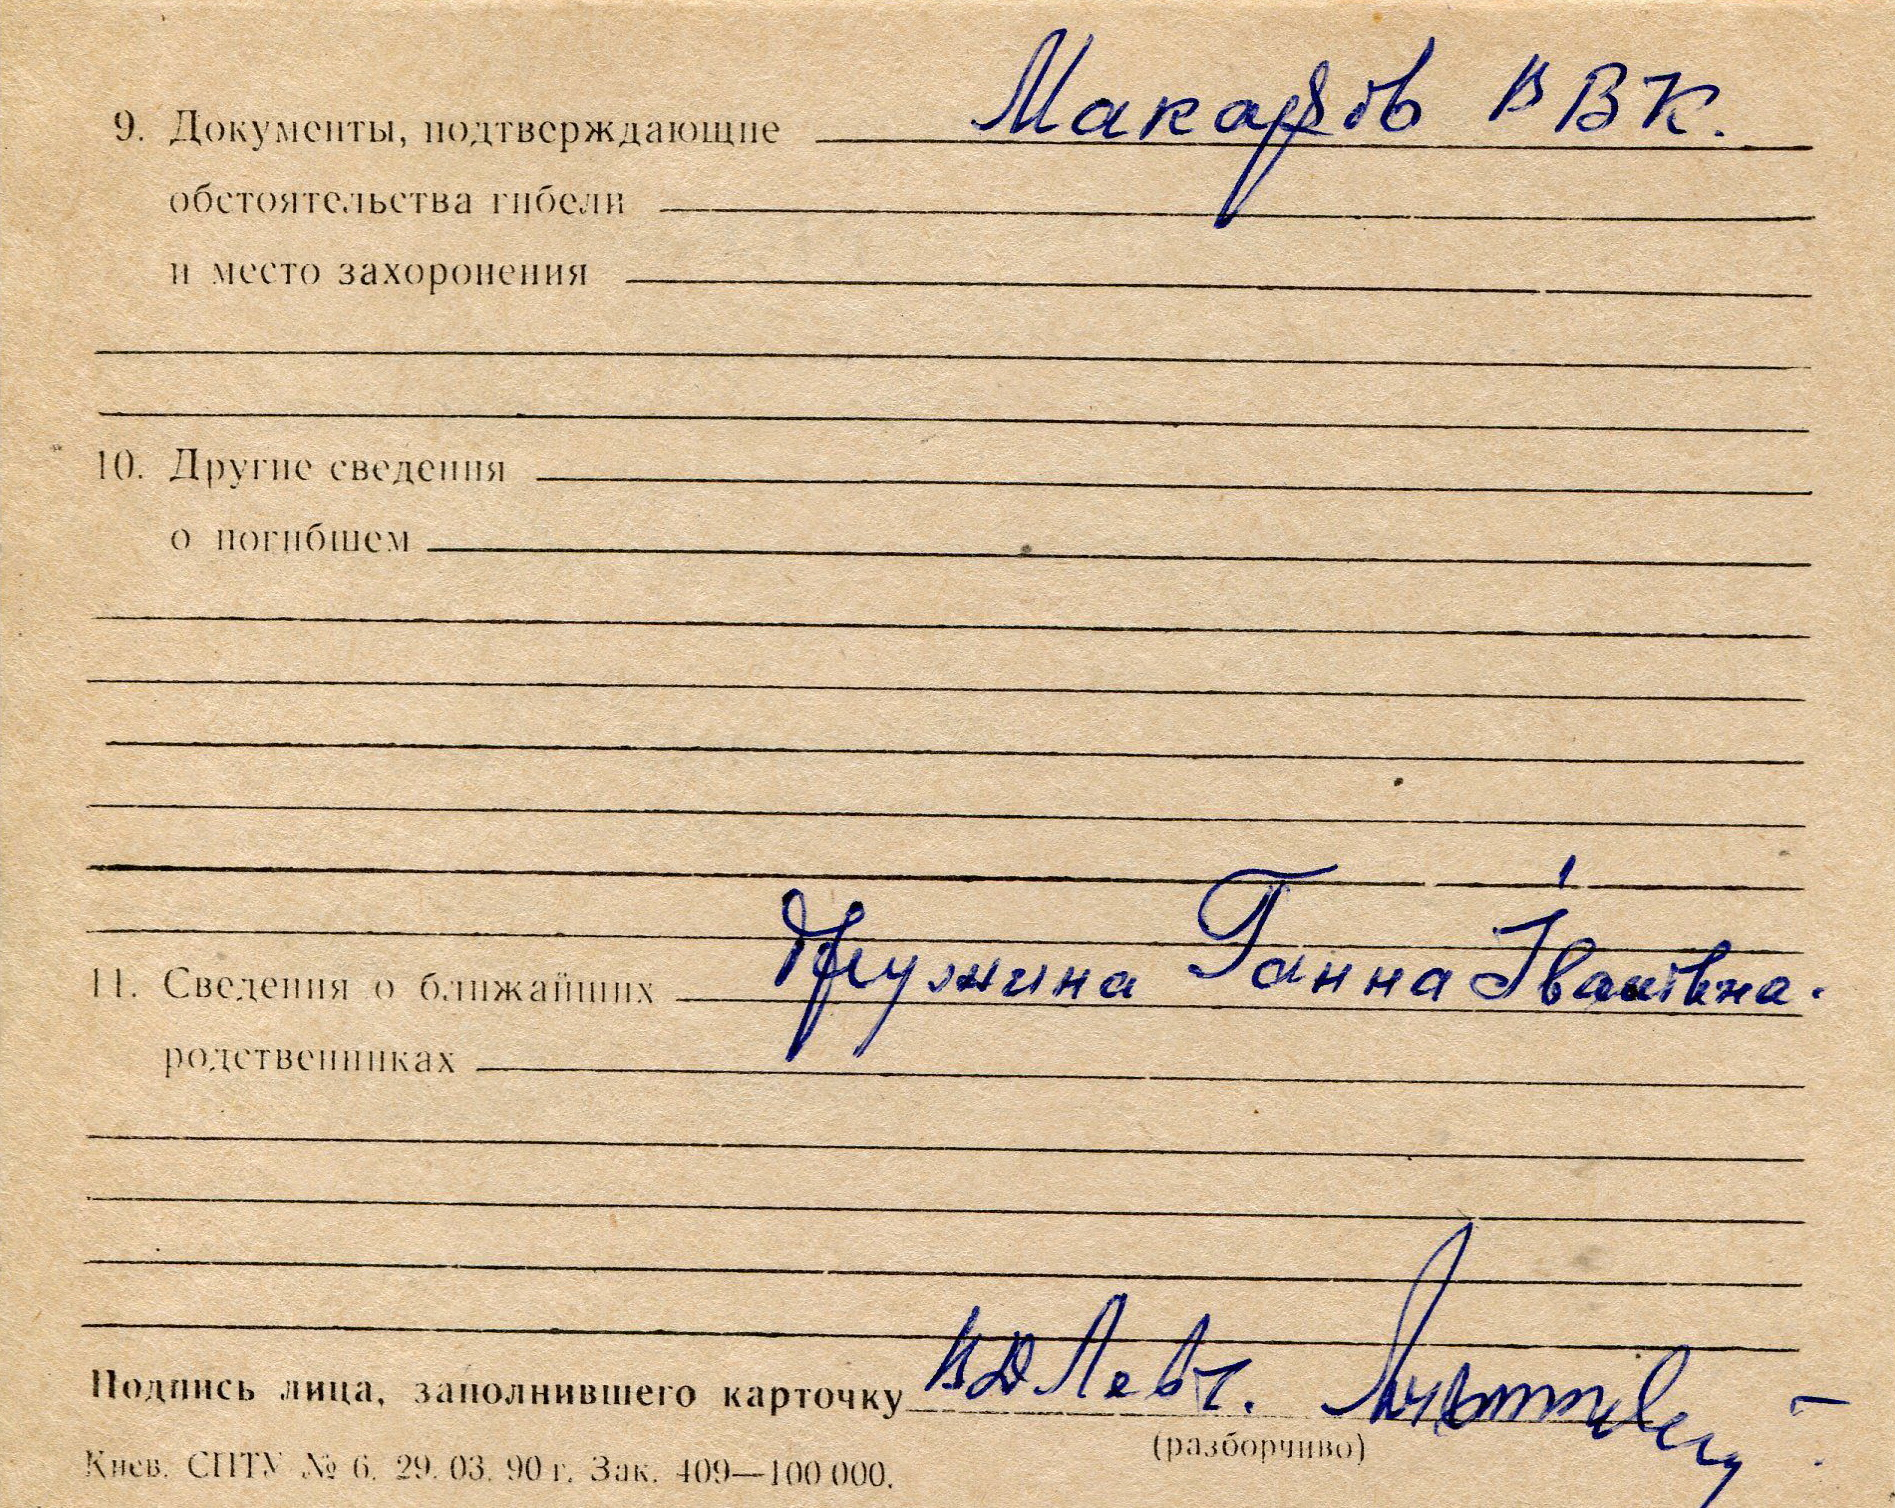 9. Документы, подтверждающие Макарів ВВК.
обстоятельства гибели
и место захоронения
10. Другие сведения
о погибшем
11. Сведения о ближайших Дружина Ганна Іванівна.
родственниках
Подпись лица, заполнившего карточку
(разборчиво)
Киев. СПТУ № 6. 29. 03. 90 г. Зак. 409—100 000.